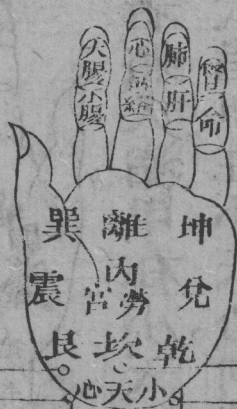 大腸小腸
心
肺肝
命
巽離坤
震內勞宮兌
艮坎乾
心天小